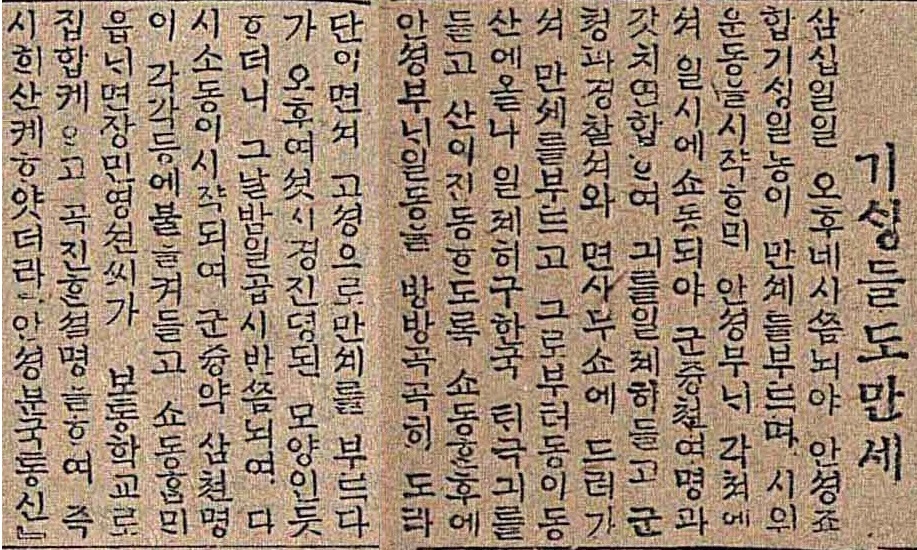 기싱들도만세
삼십일일 오후네시쯤되야 안셩죠
합기싱일동이 만셰를부르며 시위
운동을시작ᄒᆞᄆᆡ 안셩부ᄂᆡ 각쳐에
셔 일시에쇼동되야 군즁쳔여명과
갓치연합ᄒᆞ여 긔를일제히들고 군
쳥과경찰셔와 면사무쇼에 드러가
셔 만셰를부르고 그로부터동이동
산에올나 일제히구한국 태극긔를
들고 산이진동ᄒᆞ도록 쇼동ᄒᆞᆫ후에
안셩부ᄂᆡ일동을 방방곡곡히 도라
단이면셔 고셩으로만셰를 부르다
가 오후여섯시경진뎡된 모양인듯
ᄒᆞ더니 그날밤일곱시반쯤되여 다
시소동이시작되여 군즁약 삼쳔명
이 각각등에불을켜들고 쇼동ᄒᆞᆷᄆᆡ
읍ᄂᆡ면장민영션씨가 보통학교로
집합케ᄒᆞ고 곡진ᄒᆞᆫ셜명을ᄒᆞ여 즉
시ᄒᆡ산케ᄒᆞ얏더라『안셩분국통신』